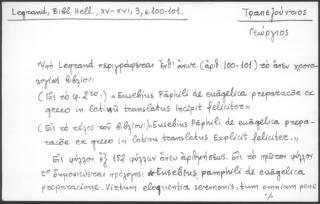 Legrand, Bibl. Hell., XV-XVI, 3, σ. 100-101.
Τραπεζούντιος
Γεώργιος
Ὑπὸ Legrand περιγράφεται ἐνθ' ἀνωτ. (ἀριθ. 100-101) τὸ ἄνευ χρονο-
λογίας βιβλίον:
(Εἰς τὸ φ. 2ʳᵒ:) «Eusebius Pāphili de euāgelica preparacōe ex
greco in latinū translatus Incipit feliciter».
(Εἰς τὸ τέλος τοῦ βιβλίου:) «Eusebius Pāphili de euāgelica prepa-
racōe ex greco in latinu translatus Explicit feliciter.»
Εἰς φύλλον ἐξ 152 φύλλων ἄνευ ἀριθμήσεως. Εἰς τὸ πρῶτον φύλλον
δημοσιεύεται πρόλογος: «Eusebius pamphili de euāgelica
preparacione. Virtum eloquentia sermonis, tum omnium pene
%